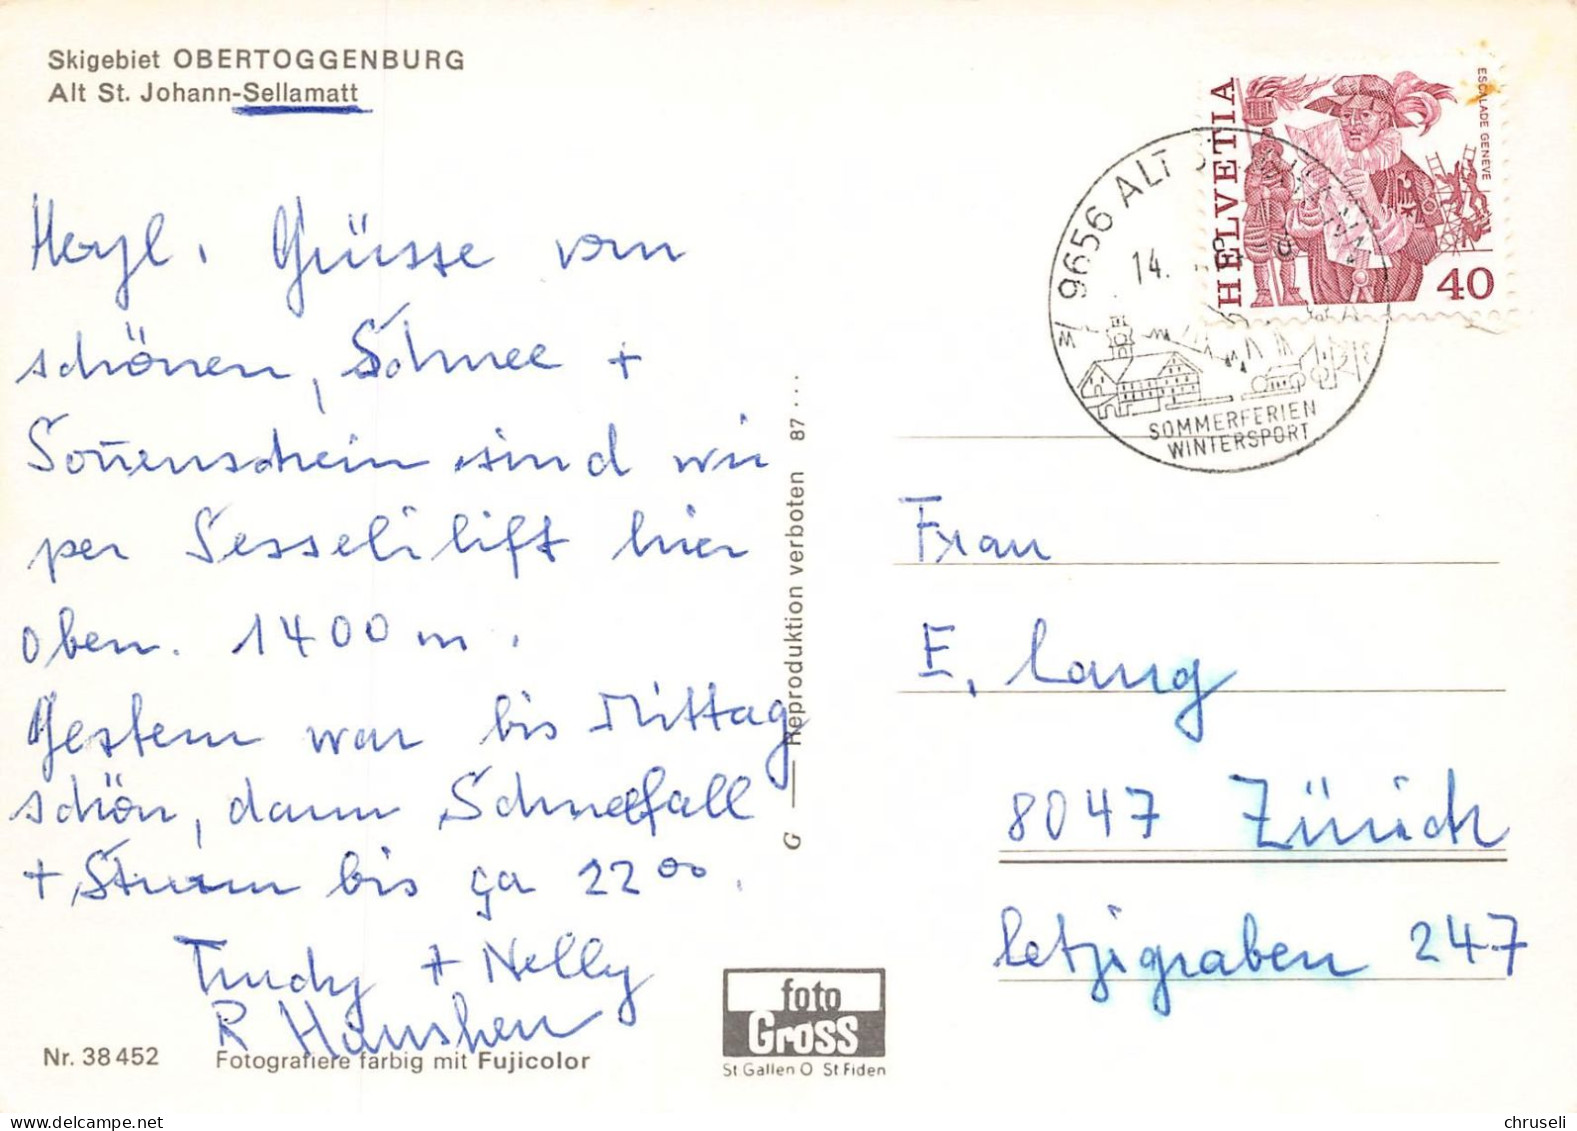 Skigebiet OBERTOGGENBURG
Alt St. Johann-Sellamatt
Herzl. Grüsse vom
schönen, Schnee +
Soñenschein sind wir
per Sesselilift hier
oben. 1400 m.
Gestern war bis Mittag
schön, dann Schneefall
+ Sturm bis ga 22⁰⁰.
Trudy + Nelly
R
Nr. 38 452
Fotografiere farbig mit Fujicolor
G Reproduktion verboten 87 ...
foto
Gross
St Gallen O St Fiden
HELVETIA
ESCALADE GENEVE
40
9656 ALT
14.
SOMMERFERIEN
WINTERSPORT
Frau
E. Lang
8047 Zürich
Letzigraben 247
chruseli